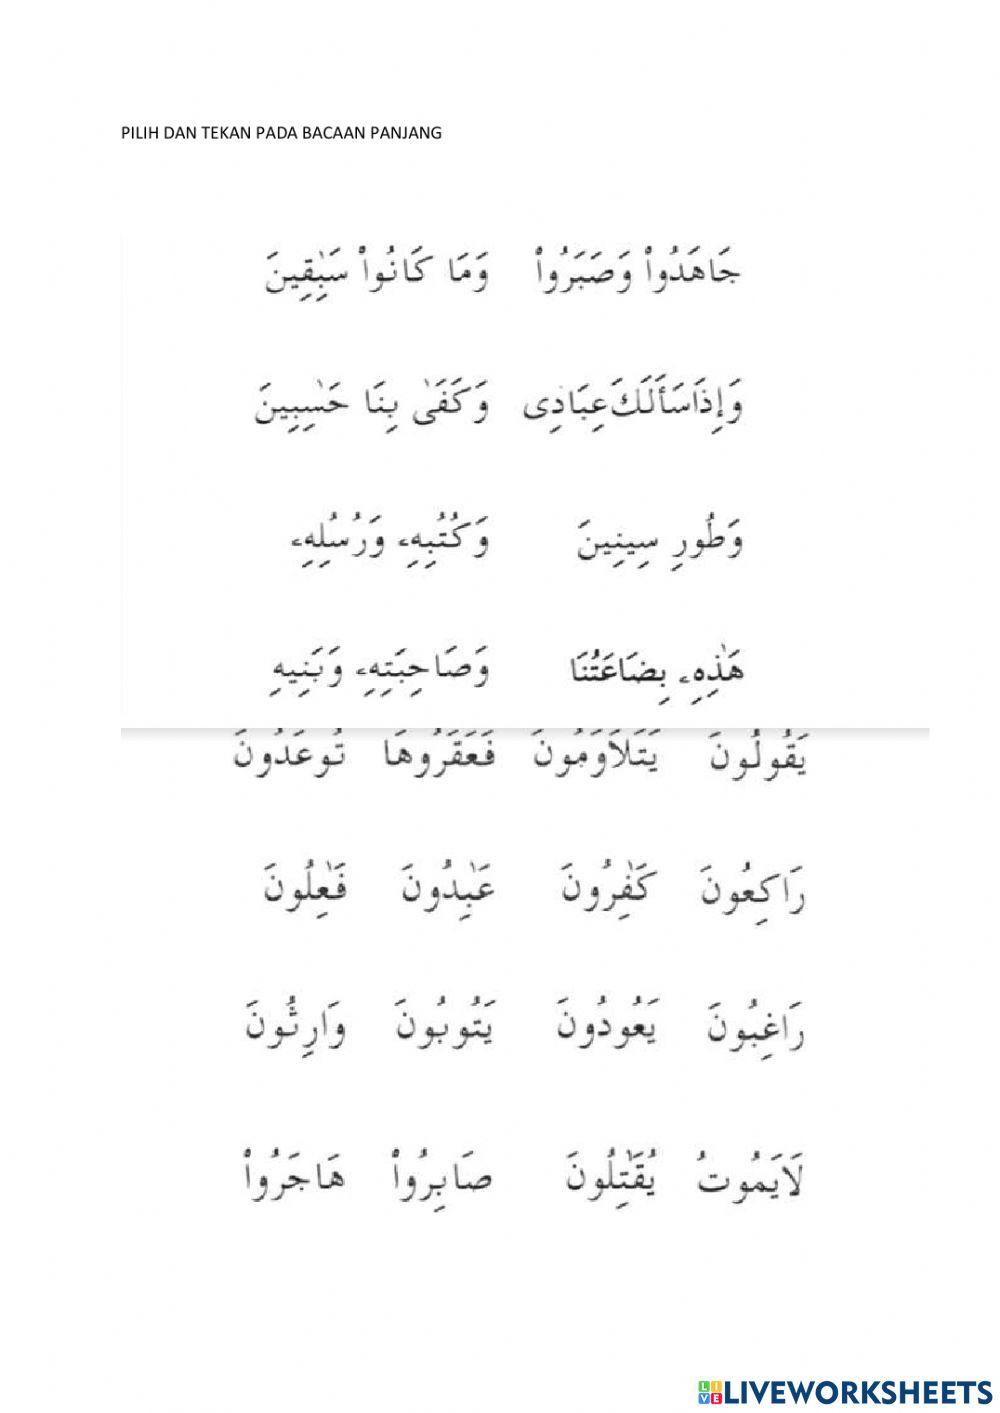 PILIH DAN TEKAN PADA BACAAN PANJANG
جَاهَدُوا۟ وَصَبَرُوا۟ وَمَا كَانُوا۟ سَٰبِقِينَ
وَإِذَا سَأَلَكَ عِبَادِى وَكَفَىٰ بِنَا حَٰسِبِينَ
وَطُورِ سِينِينَ وَكُتُبِهِۦ وَرُسُلِهِۦ
هَٰذِهِۦ بِضَاعَتُنَا وَصَاحِبَتِهِۦ وَبَنِيهِ
يَقُولُونَ يَتَلَاوَمُونَ فَعَقَرُوهَا تُوعَدُونَ
رَاكِعُونَ كَٰفِرُونَ عَٰبِدُونَ فَٰعِلُونَ
رَاغِبُونَ يَعُودُونَ يَتُوبُونَ وَارِثُونَ
لَايَمُوتُ يُقَٰتِلُونَ صَابِرُوا۟ هَاجَرُوا۟
LIVEWORKSHEETS